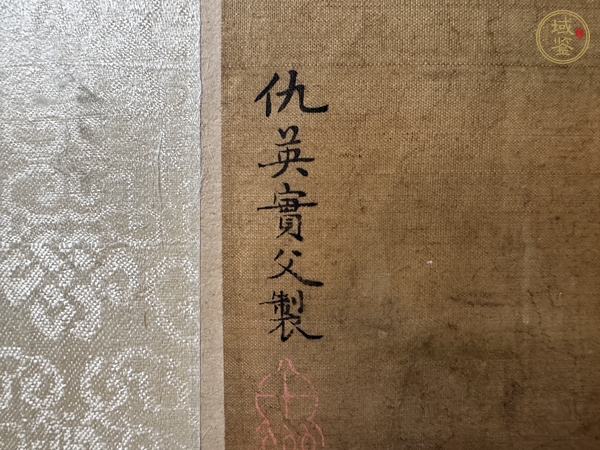 仇英實父製
域鉴